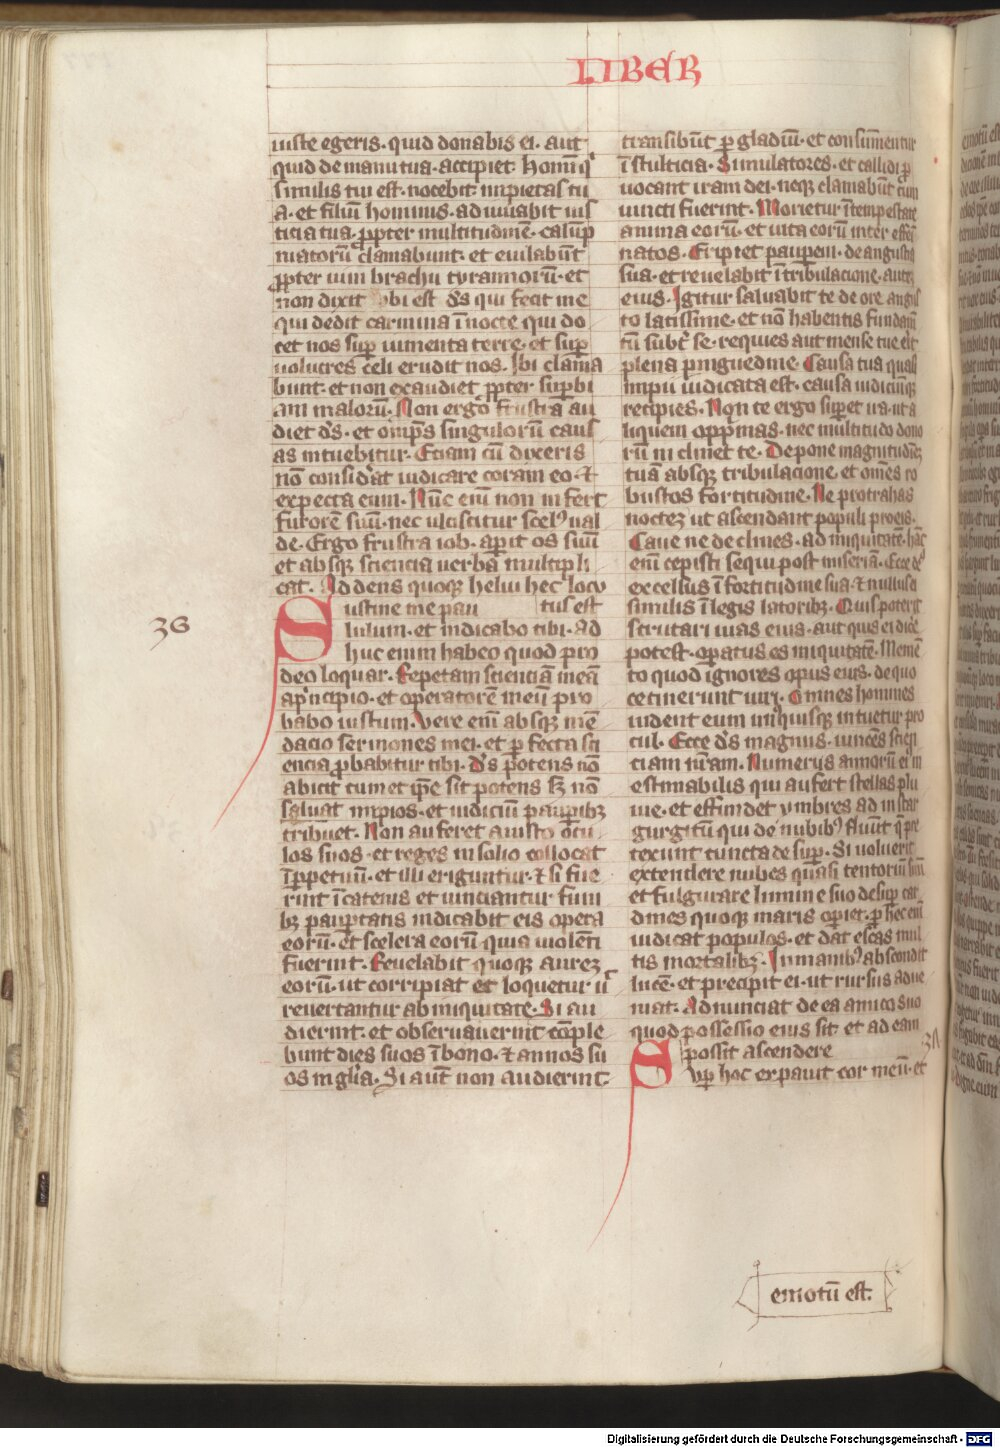 LIBER
iuste egeris. quid donabis ei. aut
quid de manu tua. accipiet. Homĩ q̾
similis tui est. nocebit impietas tu
a. et filiũ hominis. adiuuabit ius
ticia tua. ꝓpter multitudinẽ. calũp
niatorũ clamabunt. et eiulabũt
ꝓpter uim brachii tyrannorũ. et
non dixit ubi est d̃s qui fecit me
qui dedit carmina ĩ nocte. qui do
cet nos suꝑ iumenta terre. et suꝑ
uolucres celi erudit nos. Ibi clama
bunt. et non exaudiet ꝓpter suꝑbi
am malorũ. Non ergo frustra au
diet d̃s. et omp̃s singulorũ caus
as intuebitur. Etiam cũ dixeris
nõ considãt iudicare coram eo. et
expecta eum. Nũc enĩ non infert
furorẽ suũ. nec ulciscitur scelꝰ ual
de. Ergo frustra iob. aperit os suũ
et absqꝫ sciencia uerba multipli
cat. Addens quoqꝫ heliu hec locu
tus est
36
Sustine me pau
lulum. et indicabo tibi. ad
huc enim habeo quod pro
deo loquar. Repetam scienciã meã
a p̾ncipio. et operatorẽ meũ pro
babo iustum. Vere enĩ absqꝫ mẽ
dacio sermones mei. et ꝑfecta sci
encia ꝓbabitur tibi. D̃s potens nõ
abicit cum et ip̃e sit potens sꝫ nõ
saluat impios. et iudiciũ pauꝑibꝫ
tribuet. Non auferet a iusto ocu
los suos. et reges in solio collocat
ĩ ꝑpetuũ. et illi eriguntur. et si fue
rint ĩ catenis et uinciantur funi
bꝫ pauꝑtatis indicabit eis opera
eorũ. et scelera eorũ quia uiolẽti
fuerint. Reuelabit quoqꝫ aureꝫ
eorũ. ut corripiat et loquetur ut
reuertantur ab iniquitate. Si au
dierint. et obseruauerint cõple
bunt dies suos ĩ bono. et annos su
os in gl̃ia. Si aũt non audierint
transibũt ꝑ gladiũ. et consumentur
ĩ stulticia. Simulatores. et callidi ꝓ
uocant iram dei. neqꝫ clamabũt cum
uincti fuerint. Morietur ĩ tempestate
anima eorũ. et uita eorũ inter effemi
natos. Eripiet pauꝑem. de angustia
sua. et reuelabit ĩ tribulacione. aureꝫ
eius. Igitur saluabit te de ore angus
to latissime. et nõ habentis fundam̃
tũ subt̾ se. requies aut̃ mense tue erit
plena pinguedine. Causa tua quasi
impii iudicata est. causã iudiciũqꝫ
recipies. Non te ergo suꝑet ira. ut a
liquem opp̾mas. nec multitudo dono
rũ inclinet te. Depone magnitudinẽ
tuã absqꝫ tribulacione. et om̃es ro
bustos fortitudine. Ne protrahas
nocteꝫ ut ascendant populi pro eis.
Caue ne declines. ad iniquitatẽ. hãc
enĩ cepisti sequi post miseriã. Ecce d̃s
excelsus ĩ fortitudine sua. et nullus ei
similis ĩ legis latoribꝫ. Quis poterit
scrutari uias eius. aut quis ei dice̾
potest. operatus es iniquitatẽ. Memẽ
to quod ignores opus eius. de quo
cecinerunt uiri. Omnes homines
uident eum unꝰquisqꝫ intuetur pro
cul. Ecce d̃s magnus. uincẽs scien
ciam nr̃am. Numerus annorũ ei in
estimabilis qui aufert stellas plu
uie. et effundet ymbres ad instar
gurgitũ qui de nubibꝰ fluũt q̃ pre
texunt cuncta de suꝑ. Si uoluerit
extendere nubes quasi tentoriũ suũ
et fulgurare lumine suo desuꝑ car
dines quoqꝫ maris oꝑiet. ꝑ hec enĩ
iudicat populos. et dat escas mul
tis mortalibꝫ. In manibꝰ abscondit
lucẽ. et precipit ei. ut rursus adue
niat. Adnunciat de ea amico suo
quod possessio eius sit. et ad eam
possit ascendere
Suꝑ hoc expauit cor meũ. et
emotũ est.
Digitalisierung gefördert durch die Deutsche Forschungsgemeinschaft - DFG